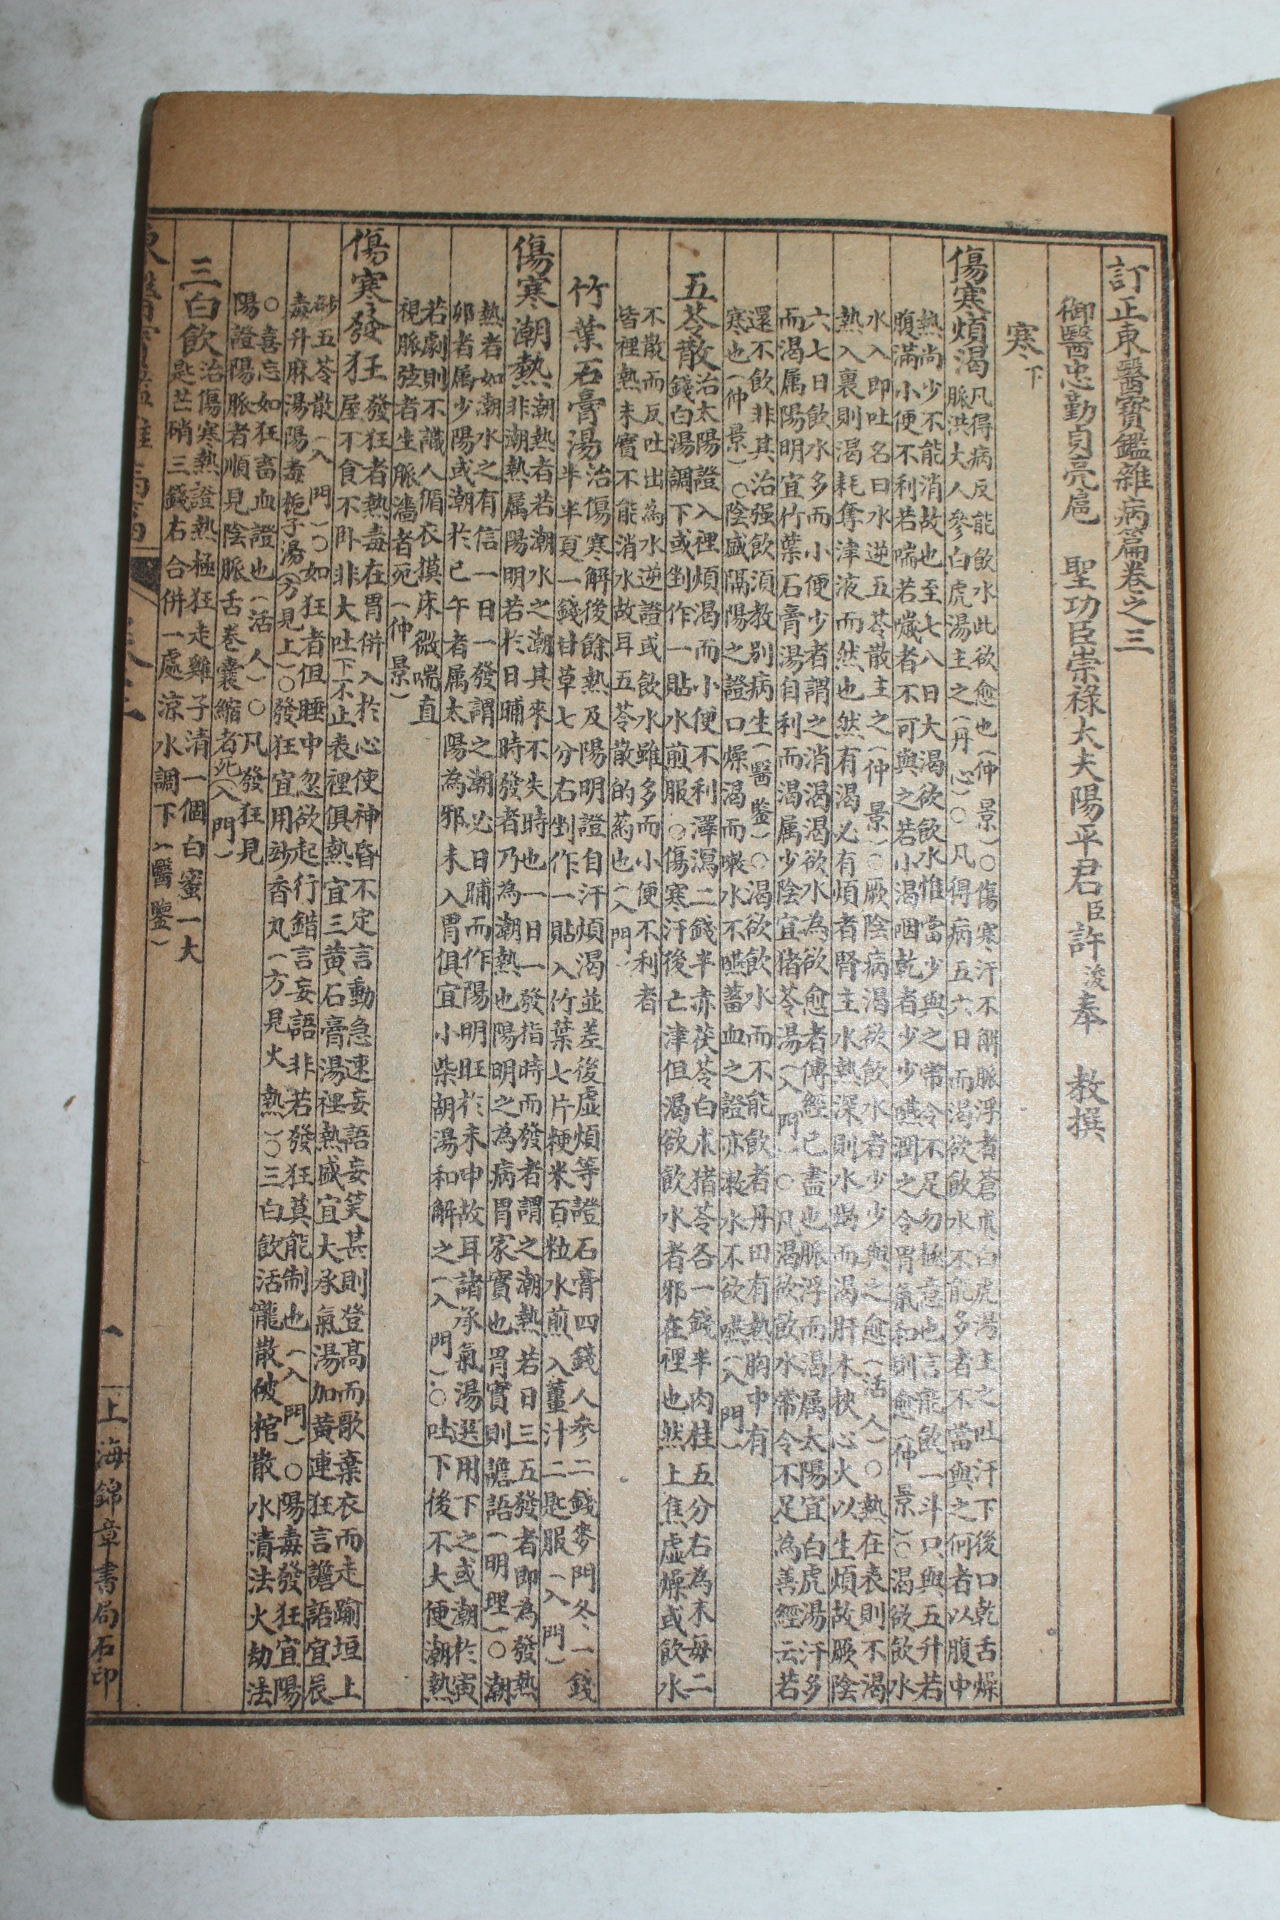 訂正東醫寶鑑雜病篇卷之三
御醫忠勤貞亮扈 聖功臣崇祿大夫陽平君臣許浚奉 教撰
寒下
傷寒煩渴 凡得病反能飮水此欲愈也(仲景)○傷寒汗不解脈浮者蒼朮白虎湯主之吐汗下後口乾舌燥
脈洪大人參白虎湯主之(丹心)○凡得病五六日而渴欲飮水不能多者不當與之何者以腹中
熱尚少不能消故也至七八日大渴欲飮水惟當少與之常令不足勿極意也言能飮一斗只與五升若
腹滿小便不利若喘若噦者不可與之若小渴咽乾者少少嚥潤之令胃氣和則愈(仲景)○渴欲飮水
水入即吐名曰水逆五苓散主之(仲景)○厥陰病渴欲飮水者少少與之愈(活人)○熱在表則不渴
熱入裏則渴耗奪津液而然也然有渴必有煩者腎主水熱深則水竭而渴肝木挾心火以生煩故厥陰
六七日飮水多而小便少者謂之消渴渴欲水爲欲愈者傳經已盡也脈浮而渴属太陽宜白虎湯汗多
而渴属陽明宜竹葉石膏湯自利而渴属少陰宜猪苓湯(入門)○凡渴欲飮水常令不足為善經云若
還不飮非其治强飮湏教別病生(醫鑒)○渴欲飮水而不能飮者丹田有熱胸中有
寒也(仲景)○陰盛隔陽之證口燥渴而漱水不嚥蓄血之證亦漱水不欲嚥(入門)
五苓散 治太陽證入裡煩渴而小便不利澤瀉二錢半赤茯苓白朮猪苓各一錢半肉桂五分右為末每二
錢白湯調下或剉作一貼水煎服○傷寒汗後亡津但渴欲飮水者邪在裡也然上焦虛燥或飮水
不散而反吐出為水逆證或飮水雖多而小便不利者
皆裡熱未實不能消水故耳五苓散的藥也(入門)
竹葉石膏湯 治傷寒解後餘熱及陽明證自汗煩渴並差後虛煩等證石膏四錢人參二錢麥門冬一錢
半半夏一錢甘草七分右剉作一貼入竹葉七片粳米百粒水煎入薑汁二匙服(入門)
傷寒潮熱 潮熱者若潮水之潮其來不失時也一日一發指時而發者謂之潮熱若日三五發者即為發熱
非潮熱属陽明若於日晡時發者乃為潮熱也陽明之為病胃家實也胃實則譫語(明理)○潮
熱者如潮水之有信一日一發謂之潮必日晡而作陽明旺於未申故耳諸承氣湯選用下之或潮於寅
卯者属少陽或潮於巳午者属太陽為邪未入胃俱宜小柴胡湯和解之(入門)○吐下後不大便潮熱
若劇則不識人循衣摸床微喘直
視脈弦者生脈濇者死(仲景)
傷寒發狂 發狂者熱毒在胃併入於心使神昏不定言動急速妄語妄笑甚則登高而歌棄衣而走踰垣上
屋不食不臥非大吐下不止表裡俱熱宜三黄石膏湯裡熱盛宜大承氣湯加黄連狂言譫語宜辰
砂五苓散(入門)○如狂者但睡中忽欲起行錯言妄語非若發狂莫能制也(入門)○陽毒發狂宜陽
毒升麻湯陽毒梔子湯(方見上)○發狂宜用䂨香丸(方見火熱)○三白飮活龍散破棺散水漬法火劫法
○喜忘如狂畜血證也(活人)○凡發狂見
陽證陽脈者順見陰脈舌卷囊縮者死(入門)
三白飮 治傷寒熱證熱極狂走雞子清一個白蜜一大
匙芒硝三錢右合併一處凉水調下(醫鑒)
一
上海錦章書局石印